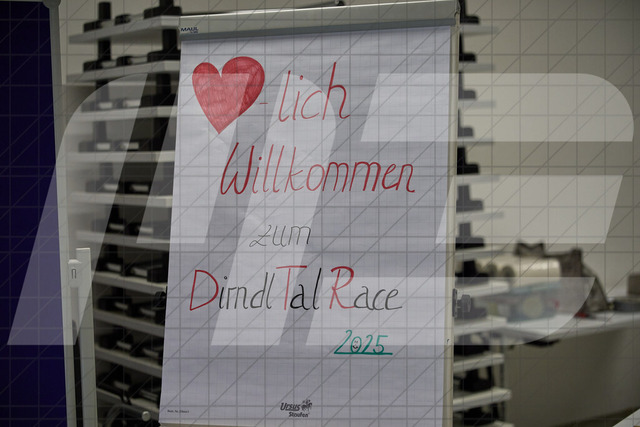 MAUL
-lich
Willkommen
zum
Dirndl Tal Race
2025
Ursus
Staufen